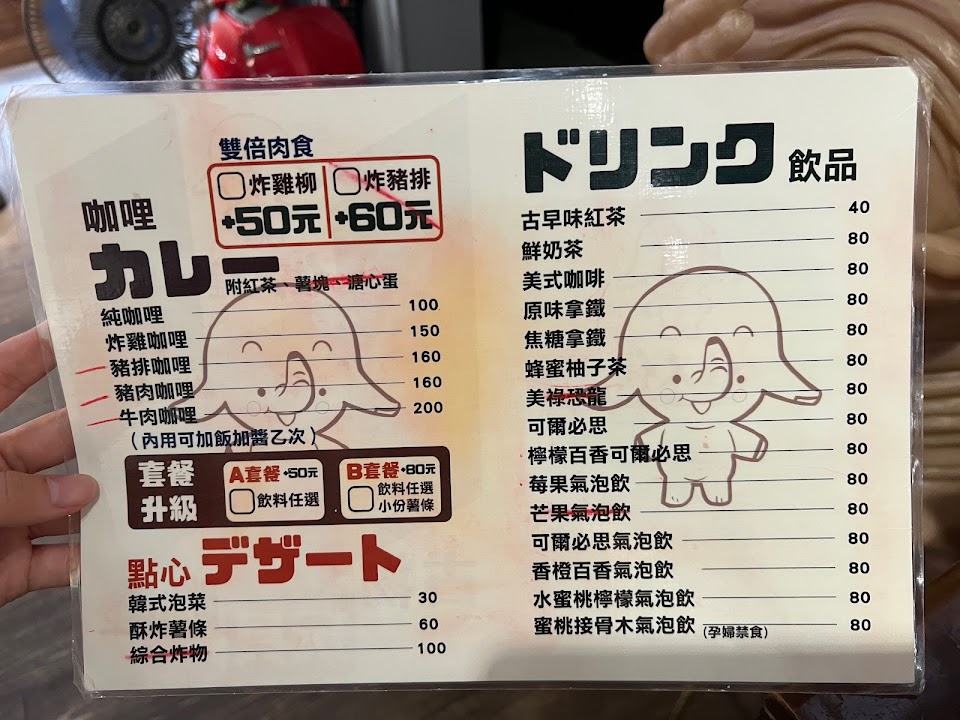 雙倍肉食
炸雞柳 炸豬排
+50元 +60元
咖哩
カレー
附紅茶、薯塊、溏心蛋
純咖哩 100
炸雞咖哩 150
豬排咖哩 160
豬肉咖哩 160
牛肉咖哩 200
(內用可加飯加醬乙次)
套餐升級
A套餐+50元
飲料任選
B套餐+80元
飲料任選
小份薯條
點心 デザート
韓式泡菜 30
酥炸薯條 60
綜合炸物 100
ドリンク 飲品
古早味紅茶 40
鮮奶茶 80
美式咖啡 80
原味拿鐵 80
焦糖拿鐵 80
蜂蜜柚子茶 80
美祿恐龍 80
可爾必思 80
檸檬百香可爾必思 80
莓果氣泡飲 80
芒果氣泡飲 80
可爾必思氣泡飲 80
香橙百香氣泡飲 80
水蜜桃檸檬氣泡飲 80
蜜桃接骨木氣泡飲(孕婦禁食) 80